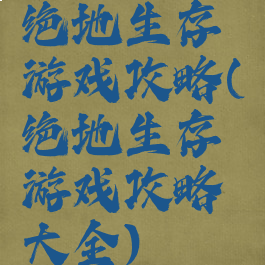 绝地生存
游戏攻略(
绝地生存
游戏攻略
大全)